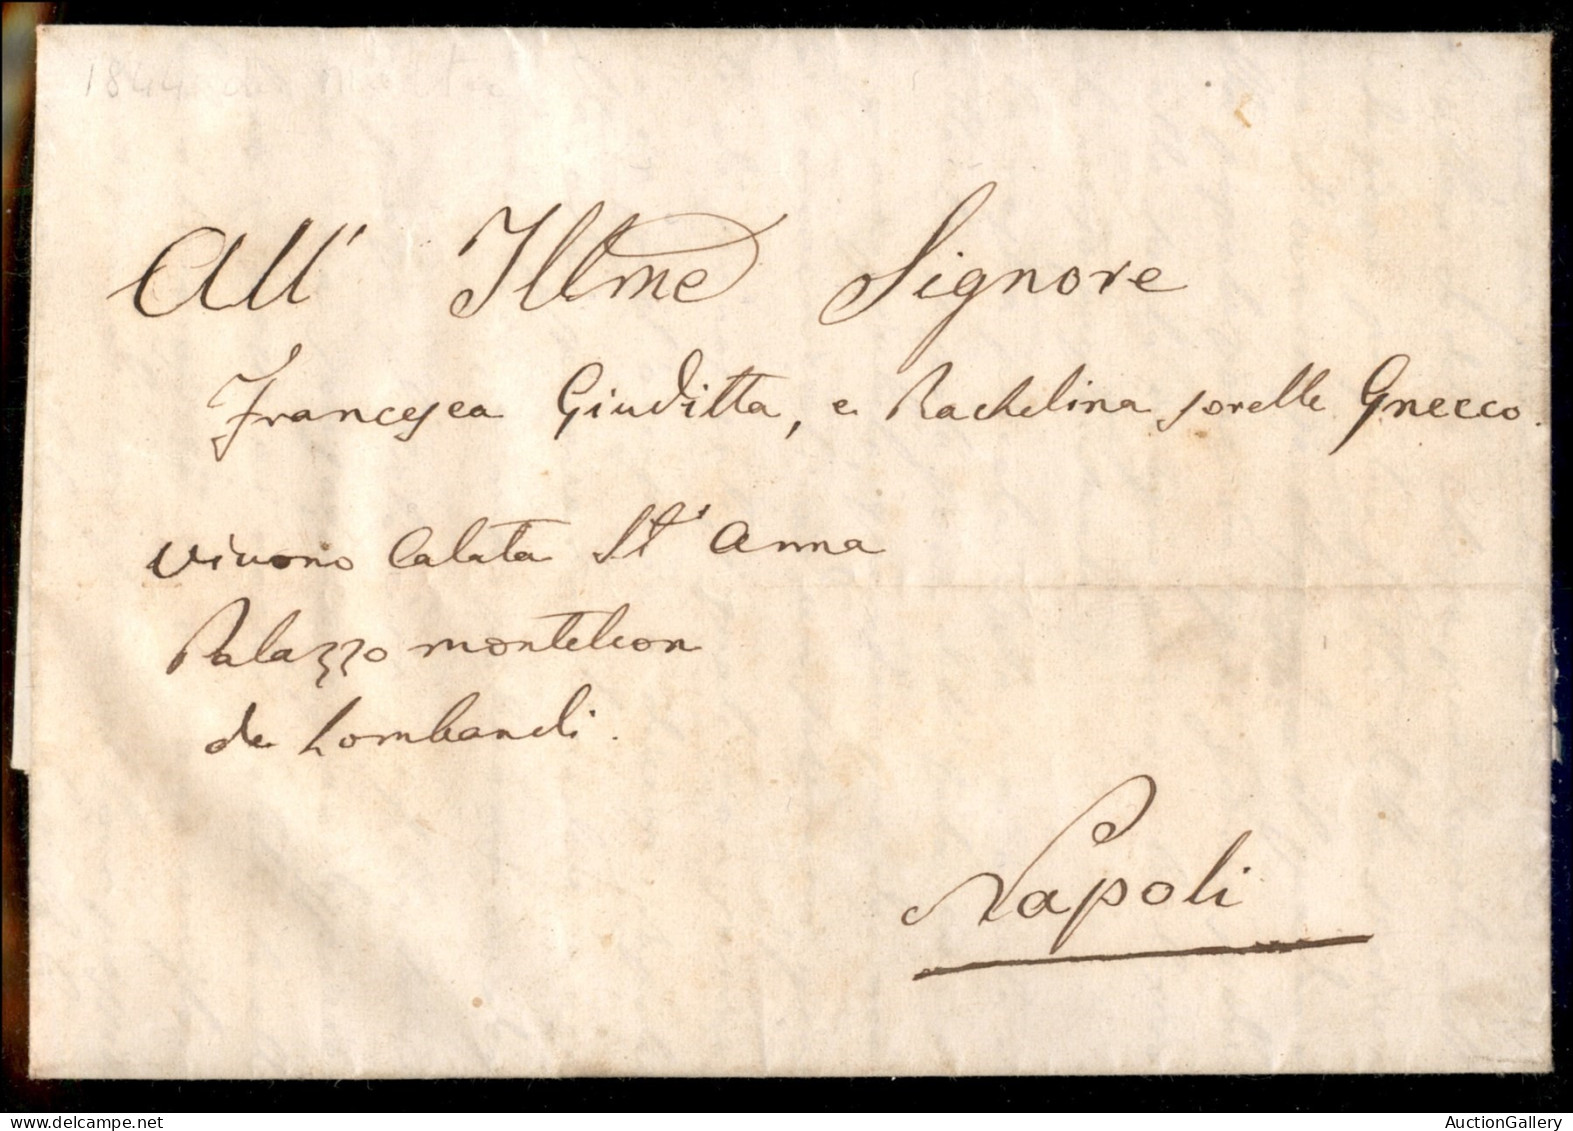 1844 da Malta
All' Illme Signore
Francesca Giuditta, e Rachelina sorelle Gnecco.
vivono Calata St' Anna
Palazzo monteleon
de Lombardi.
Napoli
www.delcampe.net
AuctionGallery